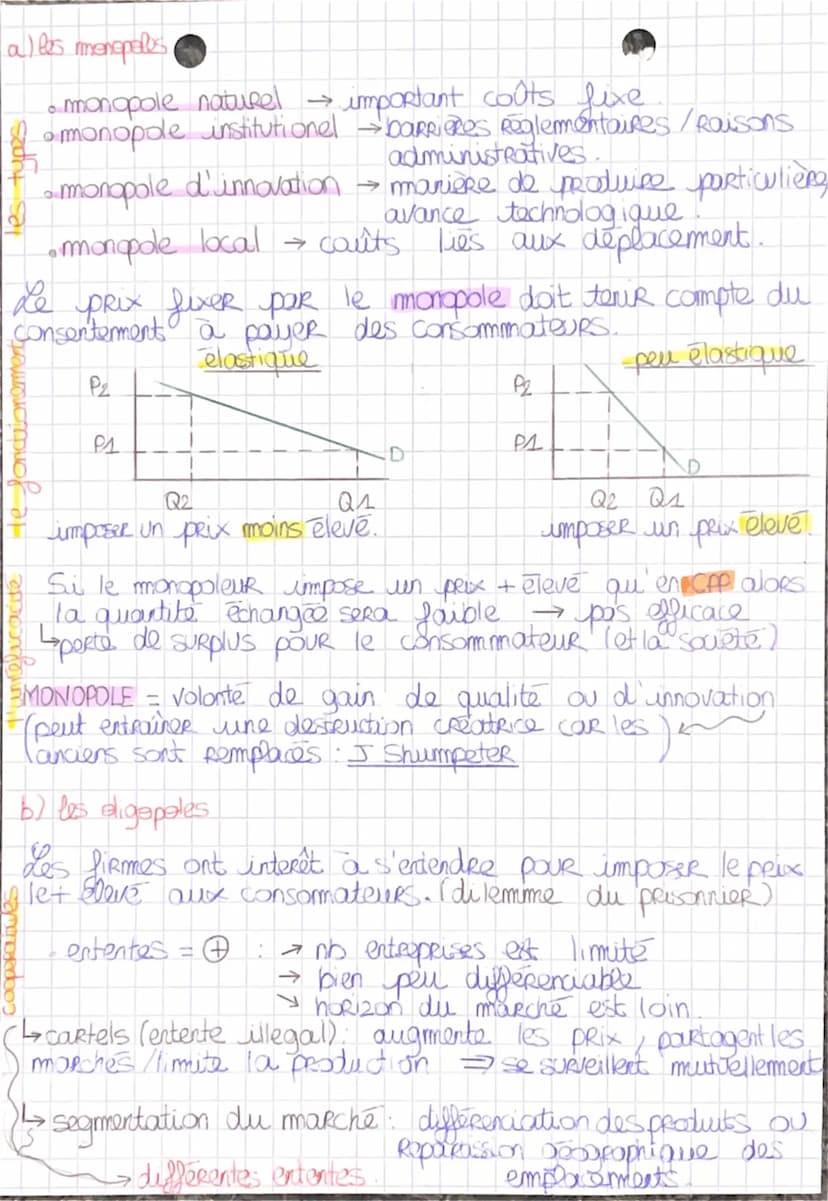 a) les monopoles
les types
• monopole naturel → important coûts fixe
• monopole institutionel → barrières Réglementaires / Raisons
administratives.
• monopole d'innovation → manière de produire particulière,
avance technologique.
• monopole local → coûts liés aux déplacement.
Le prix fixer par le monopole doit tenir compte du
consentement à payer des consommateurs.
le fonctionnement
élastique
peu élastique
P2
P1
D
Q2 Q1
P2
P1
D
Q2 Q1
imposer un prix moins élevé.
imposer un prix élevé.
Si le monopoleur impose un prix + élevé qu'en CPP alors
la quantité échangée sera faible → pas efficace
↳ perte de surplus pour le consommateur (et la société)
MONOPOLE = volonté de gain de qualité ou d'innovation
(peut entrainer une destruction créatrice car les
anciens sont remplacés : J Shumpeter)
b) les oligopoles
Les firmes ont interêt à s'entendre pour imposer le prix
le + élevé aux consomateurs. (dilemme du prisonnier)
coopératives
ententes = ⊕ : → nb entreprises est limité
→ bien peu différenciable
↘ horizon du marché est loin.
↳ cartels (entente illegal) : augmente les prix, partagent les
marchés / limite la production ⇒ se surveillent mutuellement
↳ segmentation du marché : différenciation des produits ou
géographique des
emplacements.
→ différentes ententes.